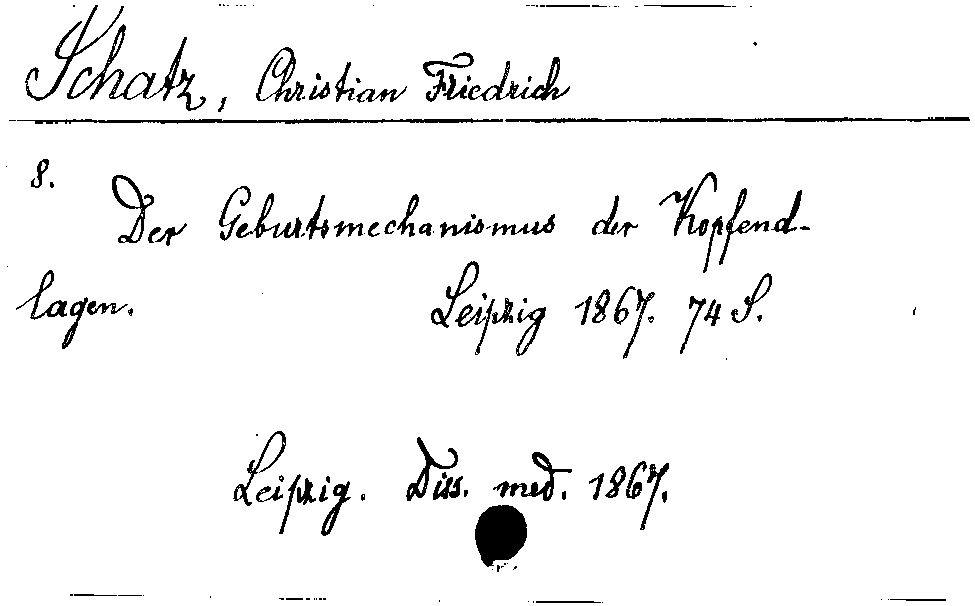 Schatz, Christian Friedrich
8.
Der Geburtsmechanismus der Kopfend-
lagen. Leipzig 1867. 74 S.
Leipzig. Diss. med. 1867.